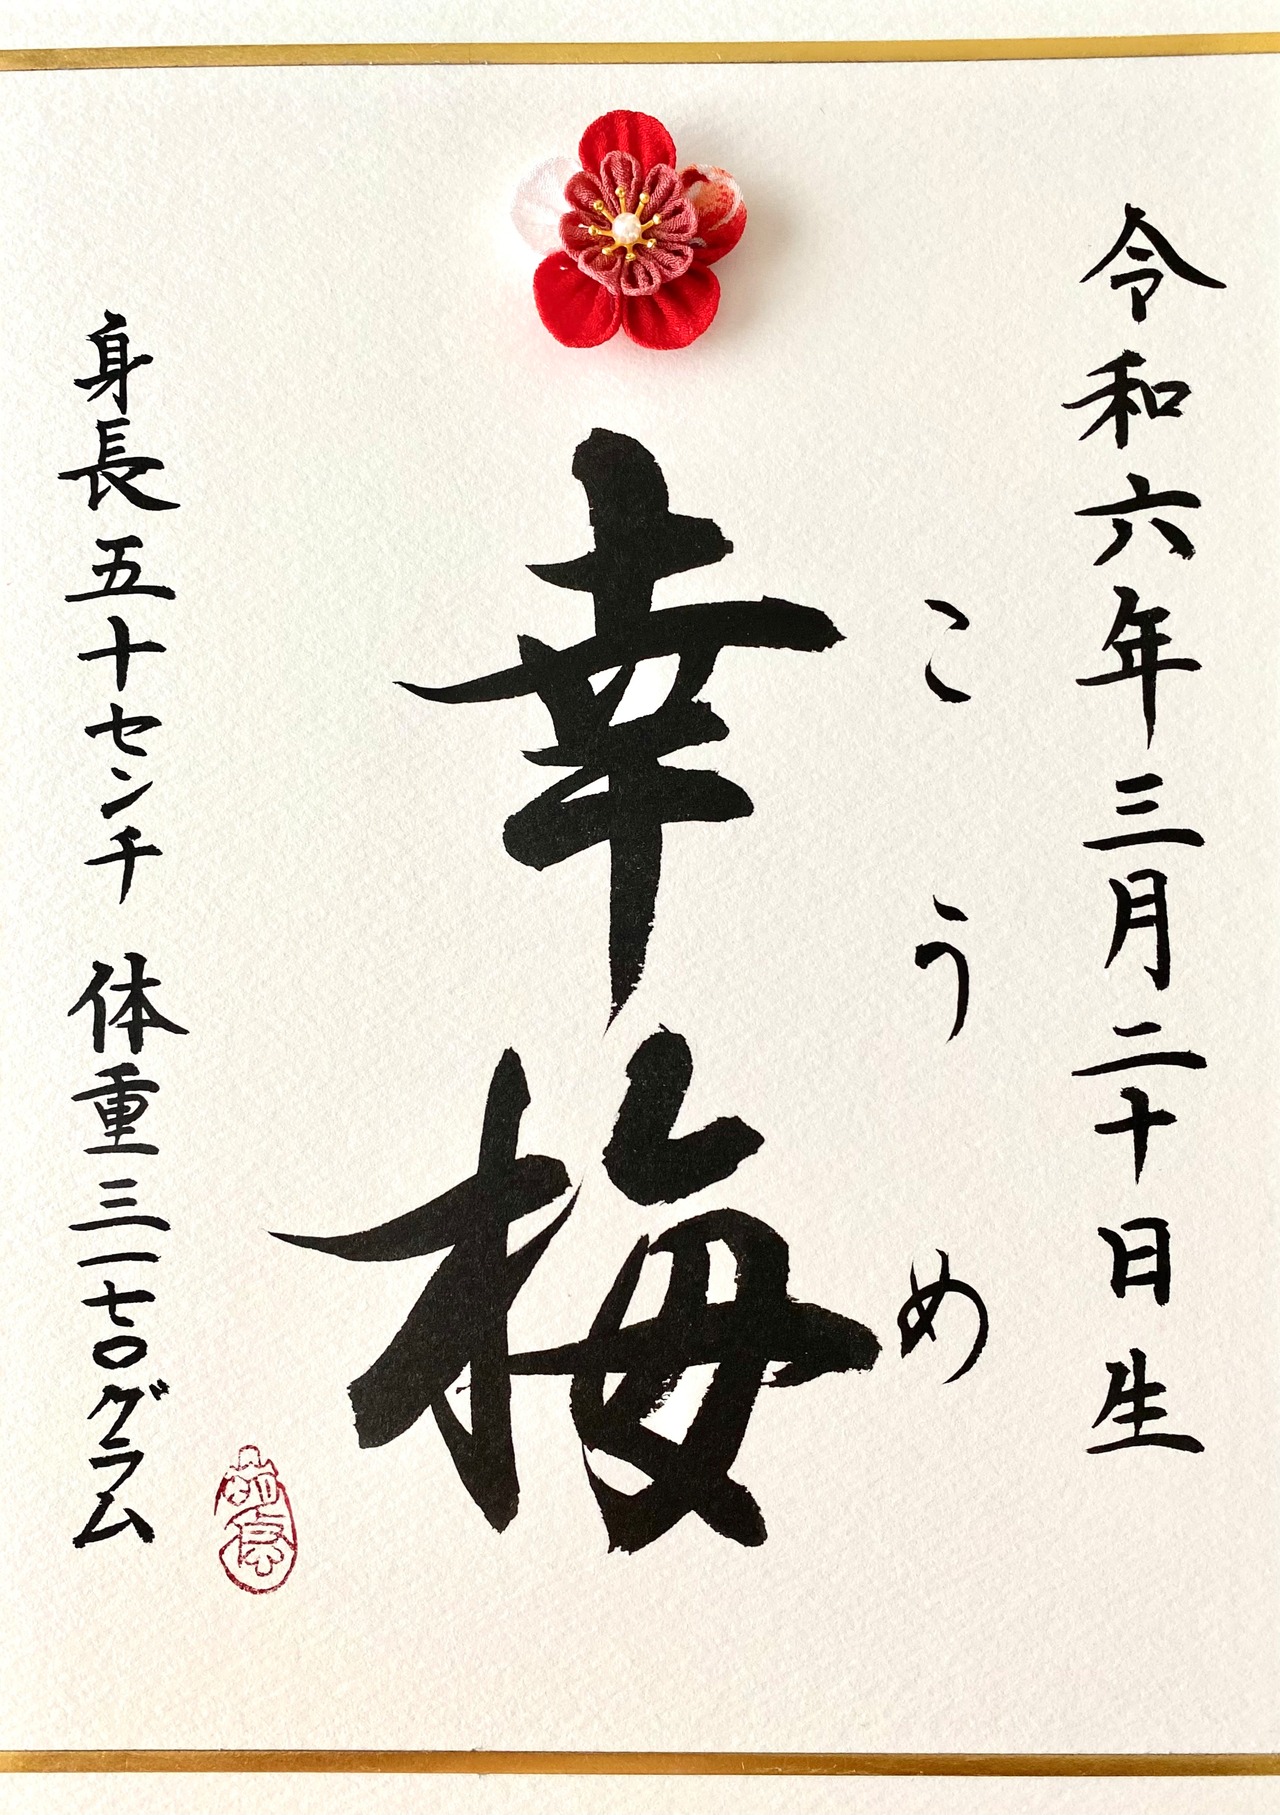 令和六年三月二十日生
こうめ
幸梅
身長五十センチ 体重三一七〇グラム